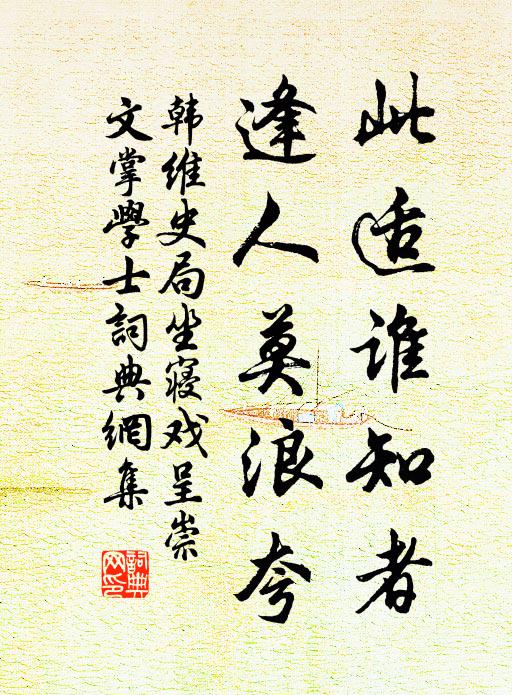 此适谁知者
逢人莫浪夸
韩维史局坐寝戏呈崇
文掌學士詞典網集
詞典网印